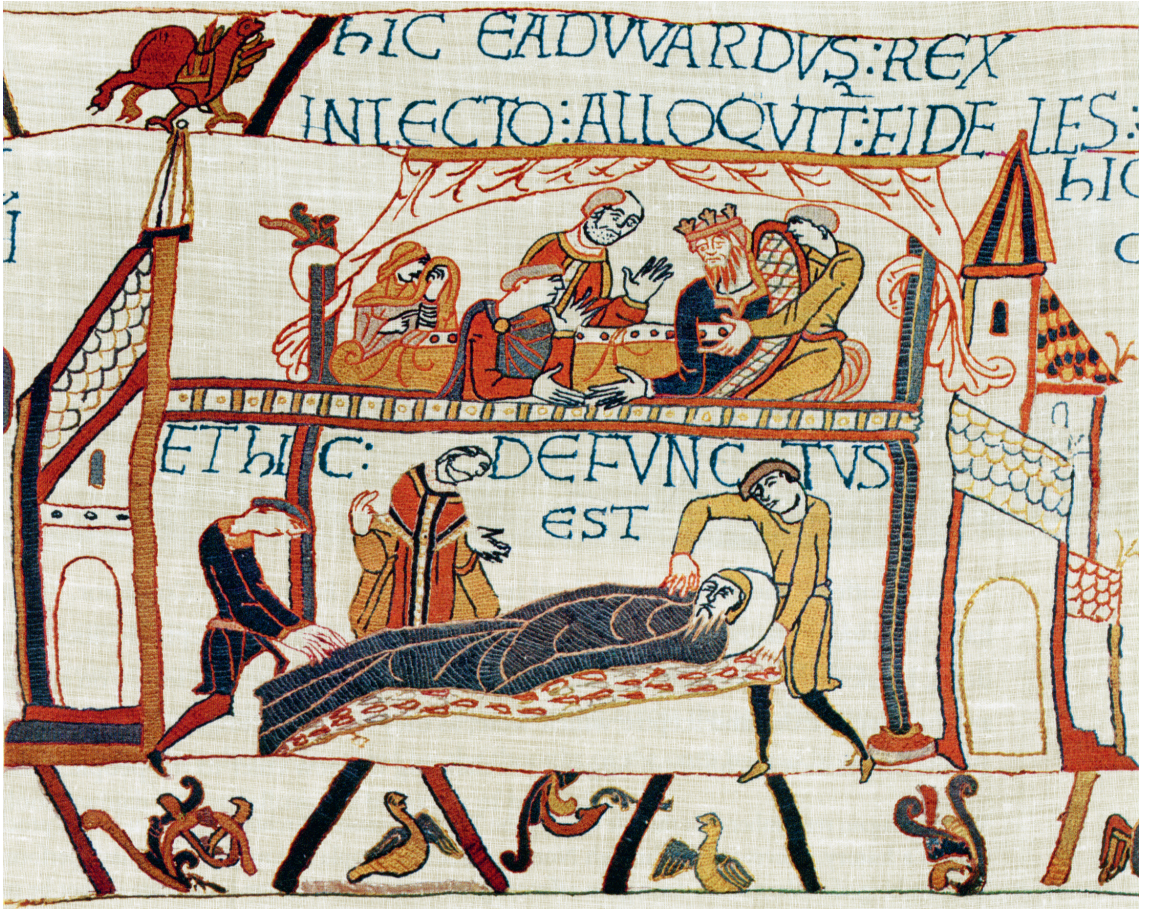 hIC EADVVARDVS:REX
INLECTO:ALLOQVIT:FIDELES:
hIC
ET hIC: DEFVNCTVS
EST